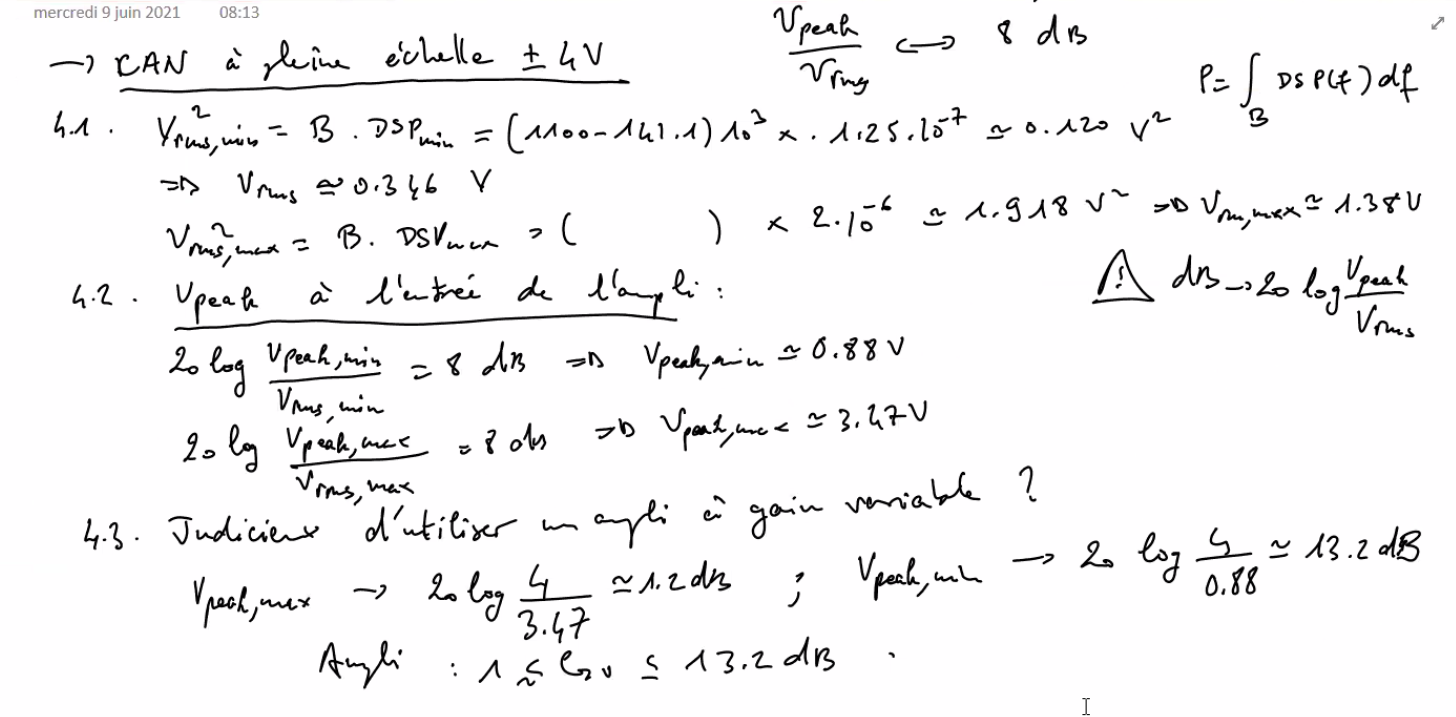 mercredi 9 juin 2021 08:13
Vpeak / Vrms ⟷ 8 dB
→ CAN à pleine échelle ± 4V
P = ∫_B DSP(f) df
4.1. V²rms,min = B . DSPmin = (1100 - 141.1) 10³ × . 1.25.10⁻⁷ ≃ 0.120 V²
=> Vrms ≃ 0.346 V
V²rms,max = B . DSVmax = ( ) × 2.10⁻⁶ ≃ 1.918 V² => Vrm,max ≃ 1.38V
4.2. Vpeak à l'entrée de l'ampli :
⚠ dB → 20 log Vpeak / Vrms
20 log Vpeak,min / Vrms,min = 8 dB => Vpeak,min ≃ 0.88 V
20 log Vpeak,max / Vrms,max = 8 dB => Vpeak,max ≃ 3.47V
4.3. Judicieux d'utiliser un ampli à gain variable ?
Vpeak,max → 20 log 4 / 3.47 ≃ 1.2 dB ; Vpeak,min → 20 log 4 / 0.88 ≃ 13.2 dB
Ampli : 1 ≲ Gv ≤ 13.2 dB .